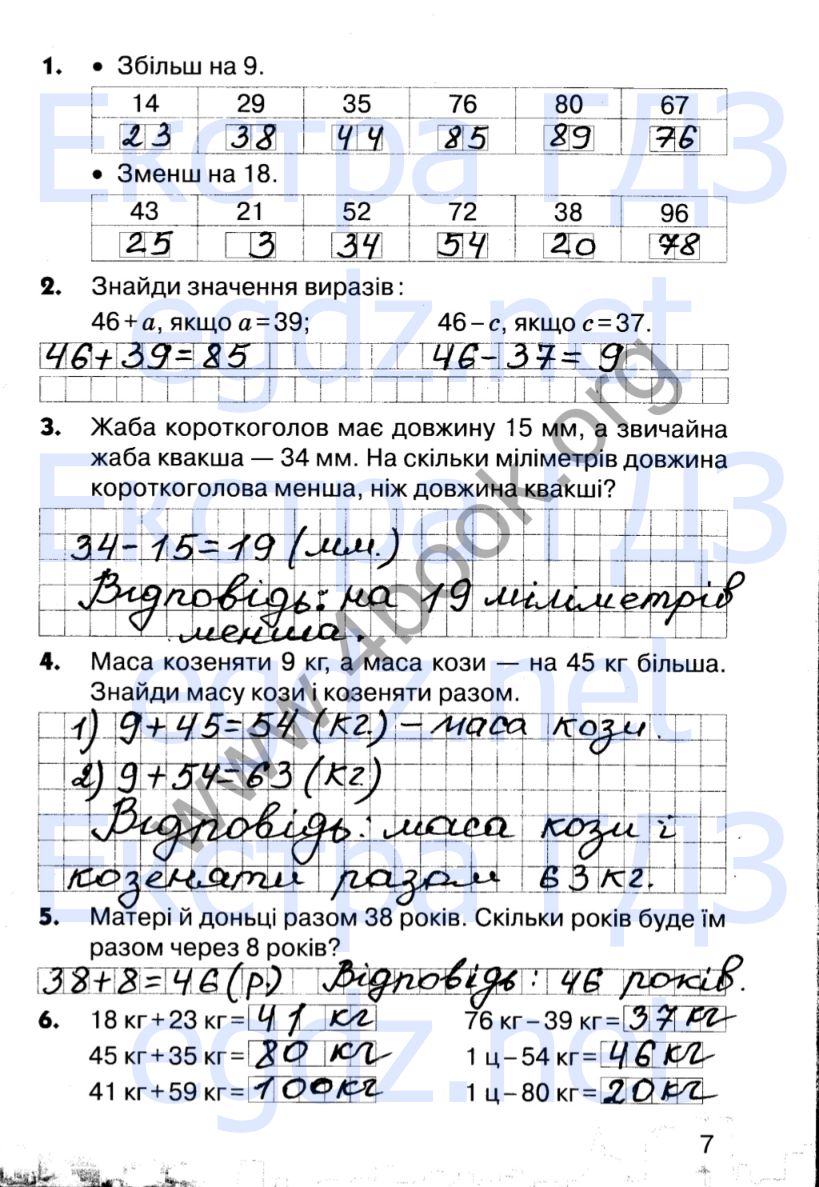 1. • Збільш на 9.
14 29 35 76 80 67
23 38 44 85 89 76
• Зменш на 18.
43 21 52 72 38 96
25 3 34 54 20 78
2. Знайди значення виразів:
46+a, якщо a=39; 46–c, якщо c=37.
46+39=85 46-37=9
3. Жаба короткоголов має довжину 15 мм, а звичайна
жаба квакша — 34 мм. На скільки міліметрів довжина
короткоголова менша, ніж довжина квакші?
34-15=19 (мм.)
Відповідь: на 19 міліметрів
менша.
4. Маса козеняти 9 кг, а маса кози — на 45 кг більша.
Знайди масу кози і козеняти разом.
1) 9+45=54 (кг.) – маса кози.
2) 9+54=63 (кг.)
Відповідь: маса кози і
козеняти разом 63 кг.
5. Матері й доньці разом 38 років. Скільки років буде їм
разом через 8 років?
38+8=46 (р.) Відповідь: 46 років.
6. 18 кг+23 кг= 41 кг 76 кг–39 кг= 37 кг
45 кг+35 кг= 80 кг 1 ц–54 кг= 46 кг
41 кг+59 кг= 100 кг 1 ц–80 кг= 20 кг
7
Екстра ГДЗ
egdz.net
Екстра ГДЗ
egdz.net
Екстра ГДЗ
egdz.net
www.4book.org